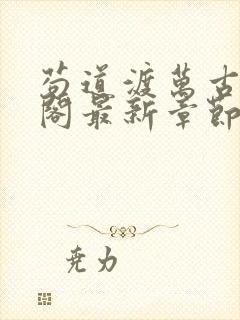 苟道渡萬古
閣最新章節
尭力